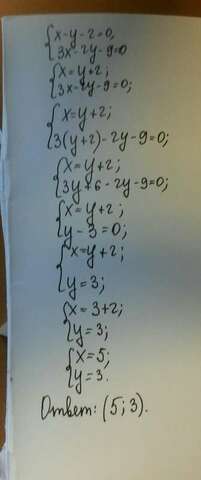 {x-y-2=0,
3x-2y-9=0
{x=y+2;
3x-2y-9=0;
{x=y+2;
3(y+2)-2y-9=0;
{x=y+2;
3y+6-2y-9=0;
{x=y+2;
y-3=0;
{x=y+2;
y=3;
{x=3+2;
y=3;
{x=5;
y=3.
Ответ: (5;3).